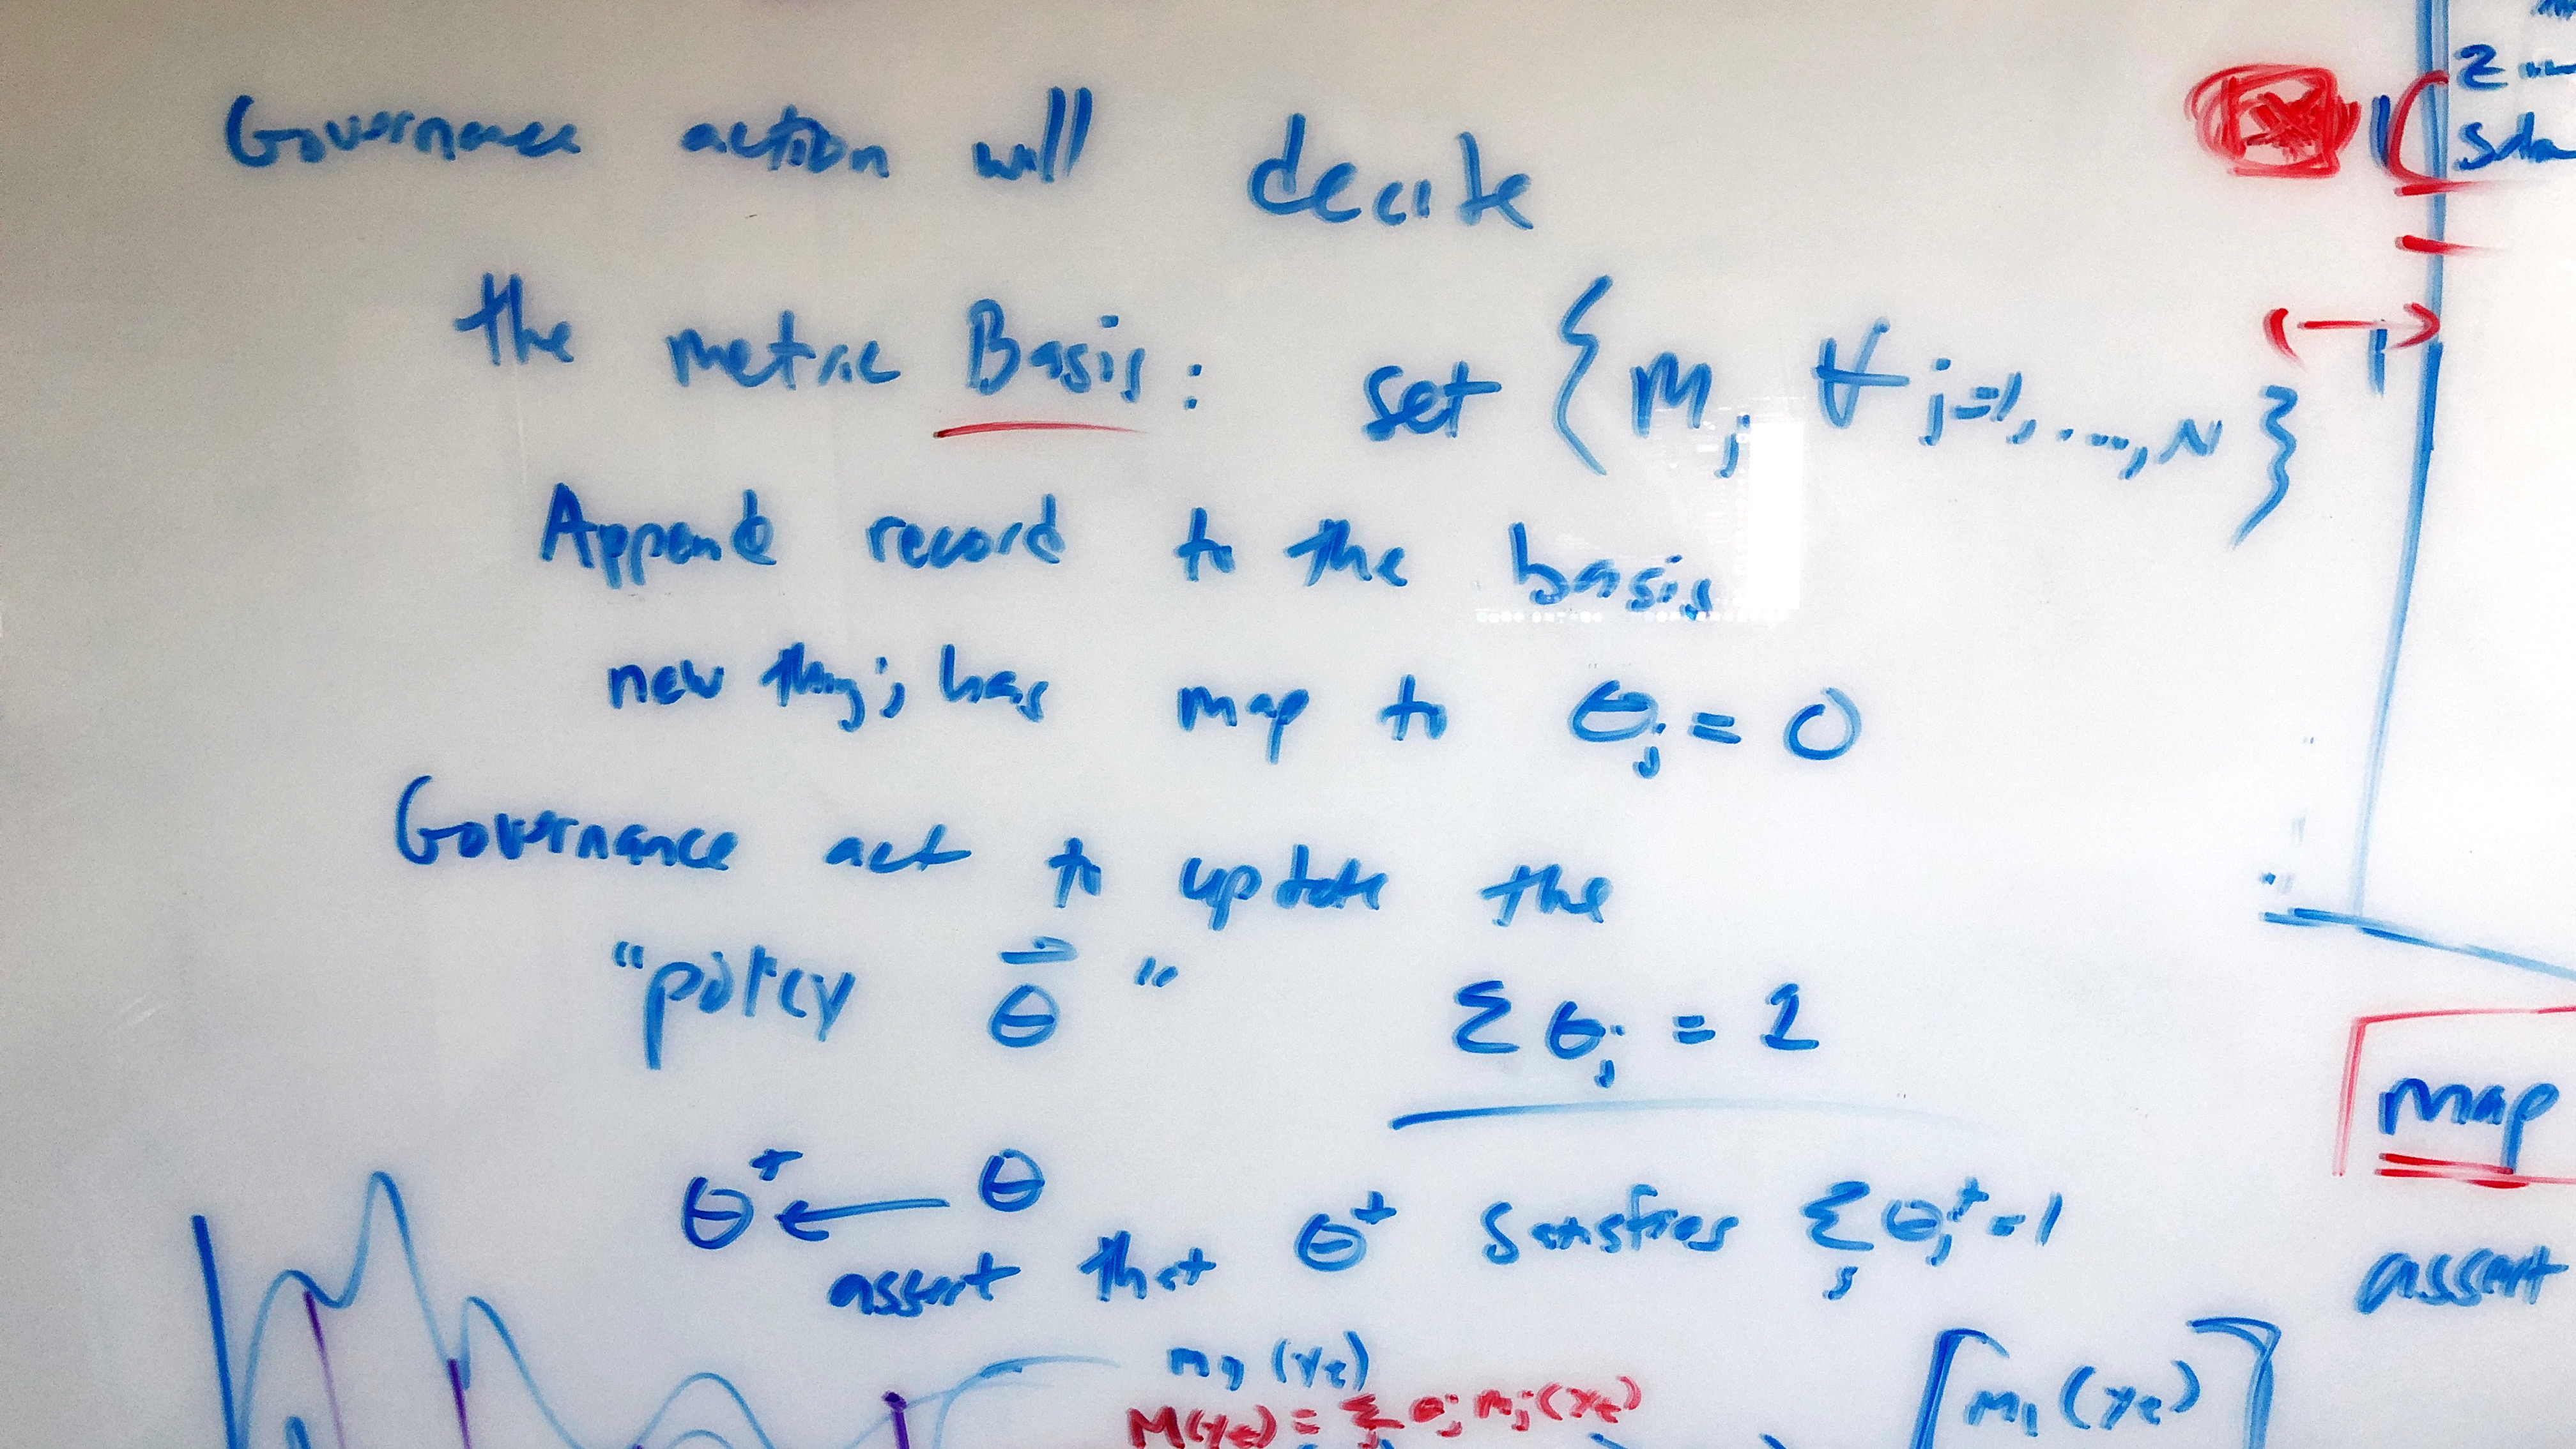 Governance action will decide
the metric Basis: set { m_j ∀ j=1, ..., N }
Append record to the basis
new thing; has map to θ_j = 0
Governance act to update the
"policy θ⃗" Σ θ_j = 1
θ⁺ ← θ
assert that θ⁺ satisfies Σ_j θ_j⁺ = 1
(Yₜ)
M(yₜ) = Σ_j θ_j m_j(yₜ)
m₁(yₜ)
2
map
assert